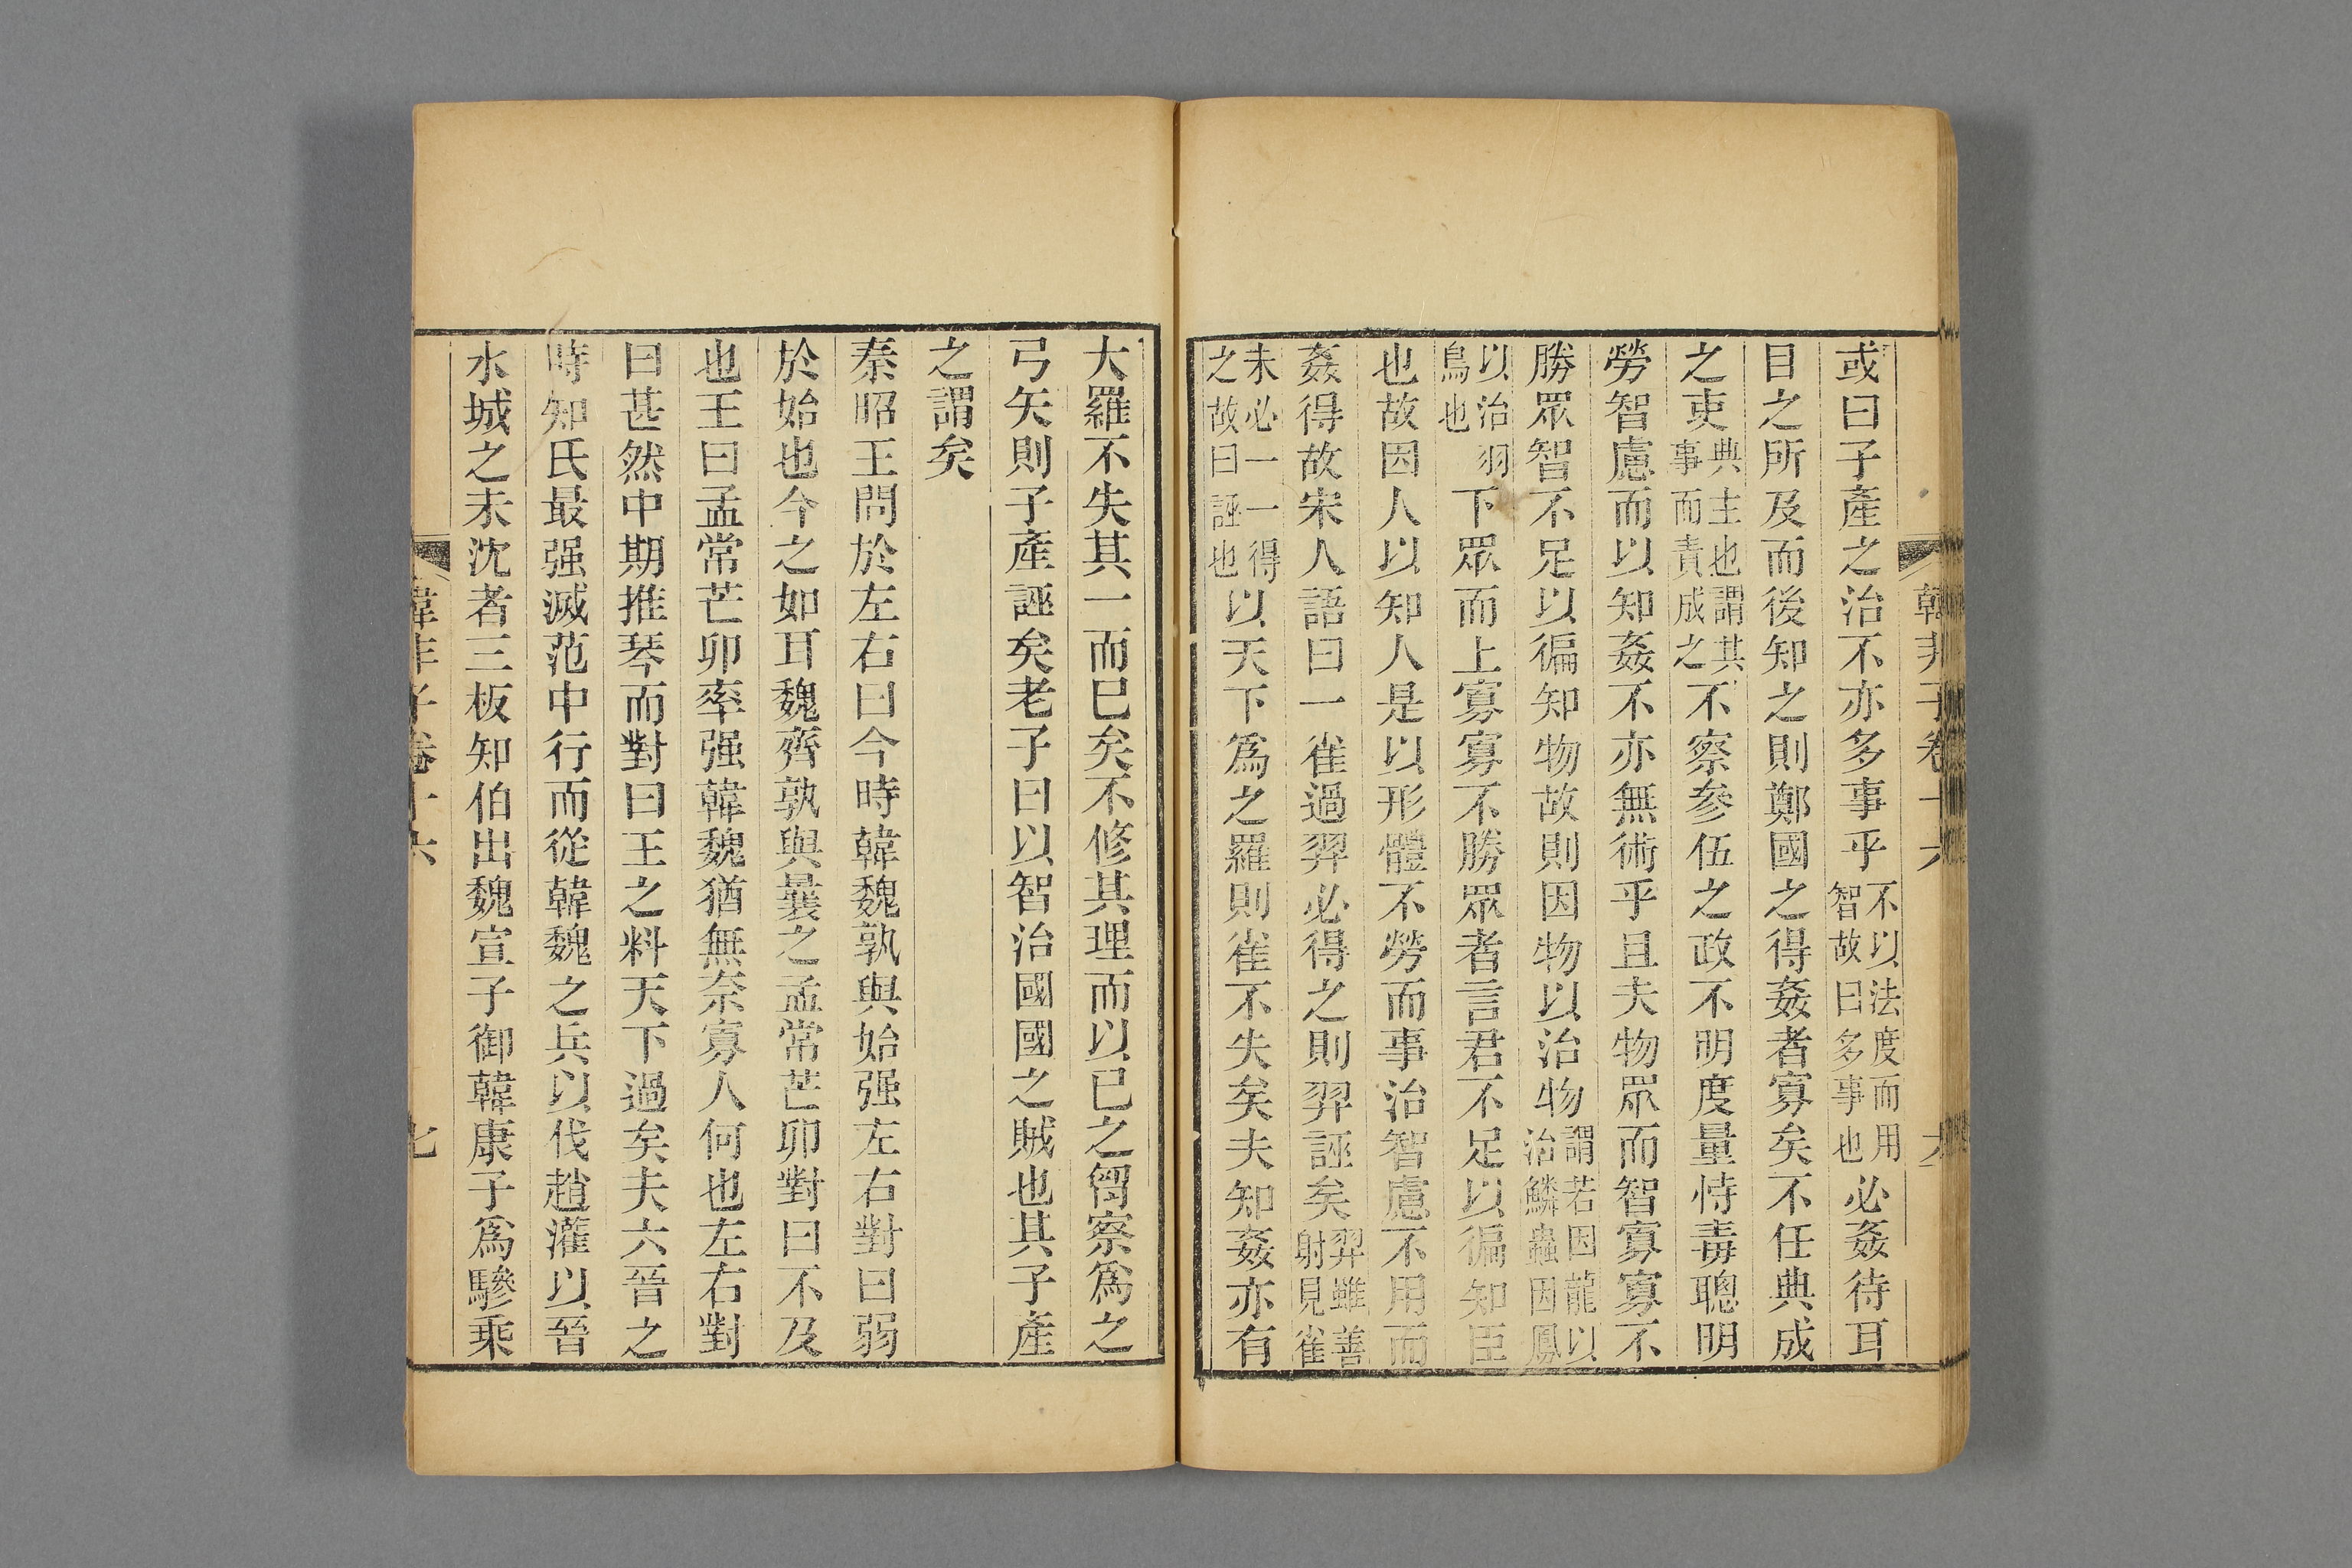 韓非子卷十六
六
或曰子產之治不亦多事乎不以法度而用智故曰多事也必姦待耳
目之所及而後知之則鄭國之得姦者寡矣不任典成
之吏典主也謂其事而責成之不察參伍之政不明度量恃毒聰明
勞智慮而以知姦不亦無術乎且夫物眾而智寡寡不
勝眾智不足以徧知物故則因物以治物謂若因龍以治鱗蟲因鳳
以治羽鳥也下眾而上寡寡不勝眾者言君不足以徧知臣
也故因人以知人是以形體不勞而事治智慮不用而
姦得故宋人語曰一雀過羿必得之則羿誣矣羿雖善射見雀
未必一一得之故曰誣也以天下為之羅則雀不失矣夫知姦亦有
大羅不失其一而已矣不修其理而以己之胷察為之
弓矢則子產誣矣老子曰以智治國國之賊也其子產
之謂矣
秦昭王問於左右曰今時韓魏孰與始强左右對曰弱
於始也今之如耳魏齊孰與曩之孟常芒卯對曰不及
也王曰孟常芒卯率强韓魏猶無奈寡人何也左右對
曰甚然中期推琴而對曰王之料天下過矣夫六晉之
時知氏最强滅范中行而從韓魏之兵以伐趙灌以晉
水城之未沈者三板知伯出魏宣子御韓康子為驂乘
韓非子卷十六
七